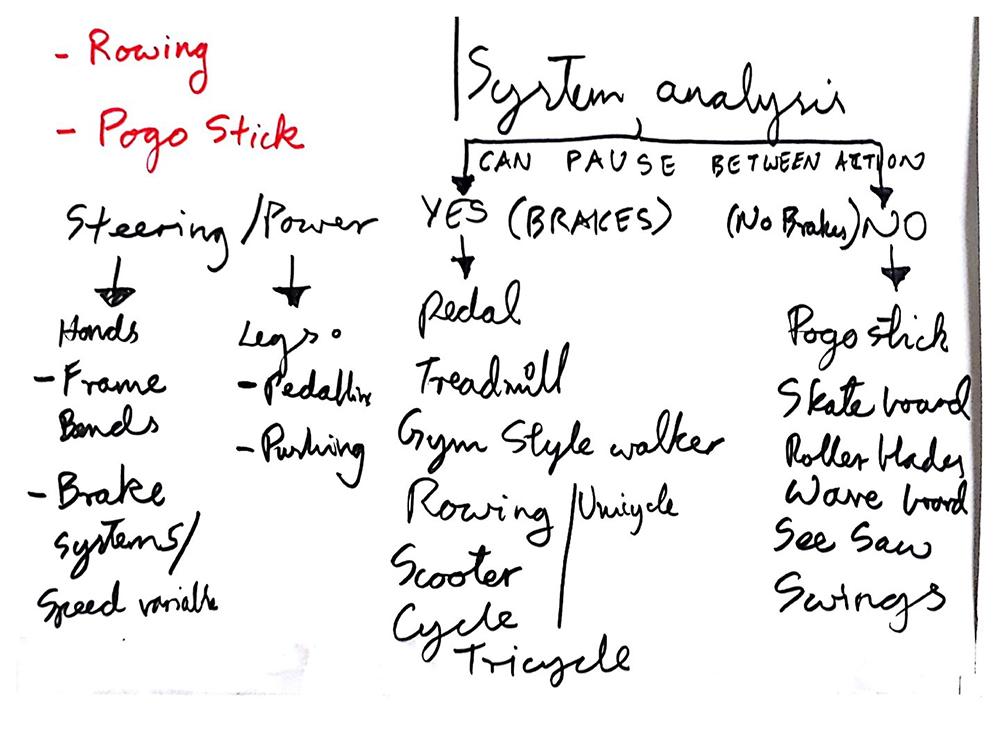 - Rowing
- Pogo Stick
Steering / Power
Hands
- Frame
Bends
- Brake
systems/
Speed variable
Legs.
- Pedalling
- Pushing
System analysis
CAN PAUSE BETWEEN ACTION
YES (BRAKES)
(No Brakes) NO
Pedal
Treadmill
Gym Style walker
Rowing / Unicycle
Scooter
Cycle
Tricycle
Pogo stick
Skate board
Roller blades
Wave board
See Saw
Swings